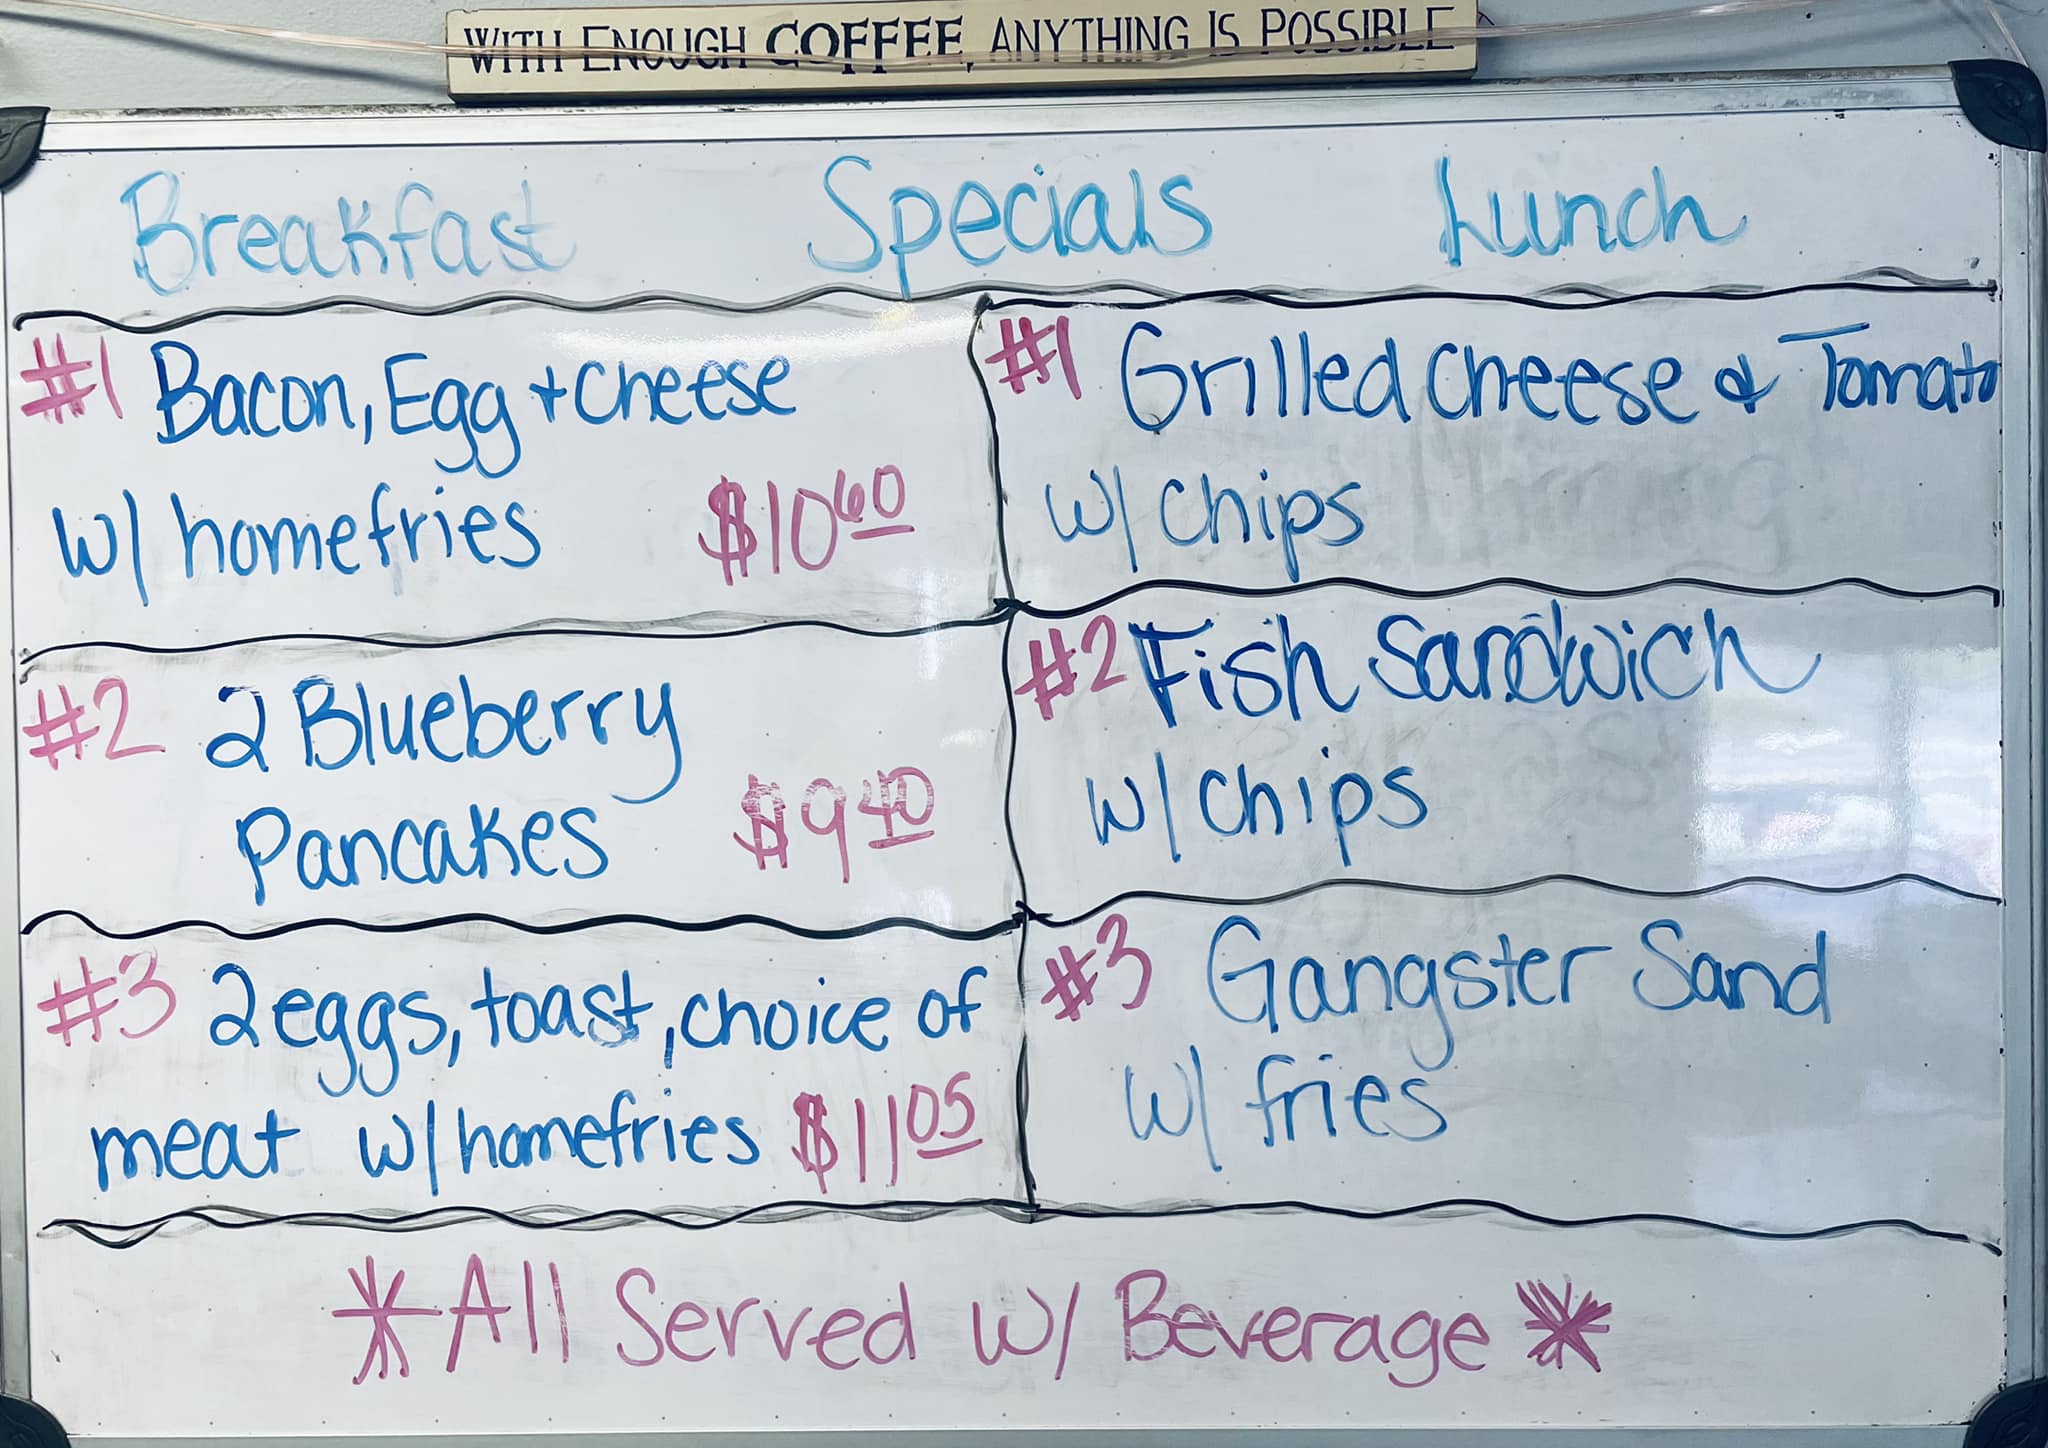 WITH ENOUGH COFFEE, ANYTHING IS POSSIBLE
Breakfast Specials Lunch
#1 Bacon, Egg + Cheese
w/ homefries $10.60
#2 2 Blueberry
Pancakes $9.40
#3 2 eggs, toast, choice of
meat w/ homefries $11.05
#1 Grilled Cheese & Tomato
w/ chips
#2 Fish Sandwich
w/ chips
#3 Gangster Sand
w/ fries
*All Served w/ Beverage*